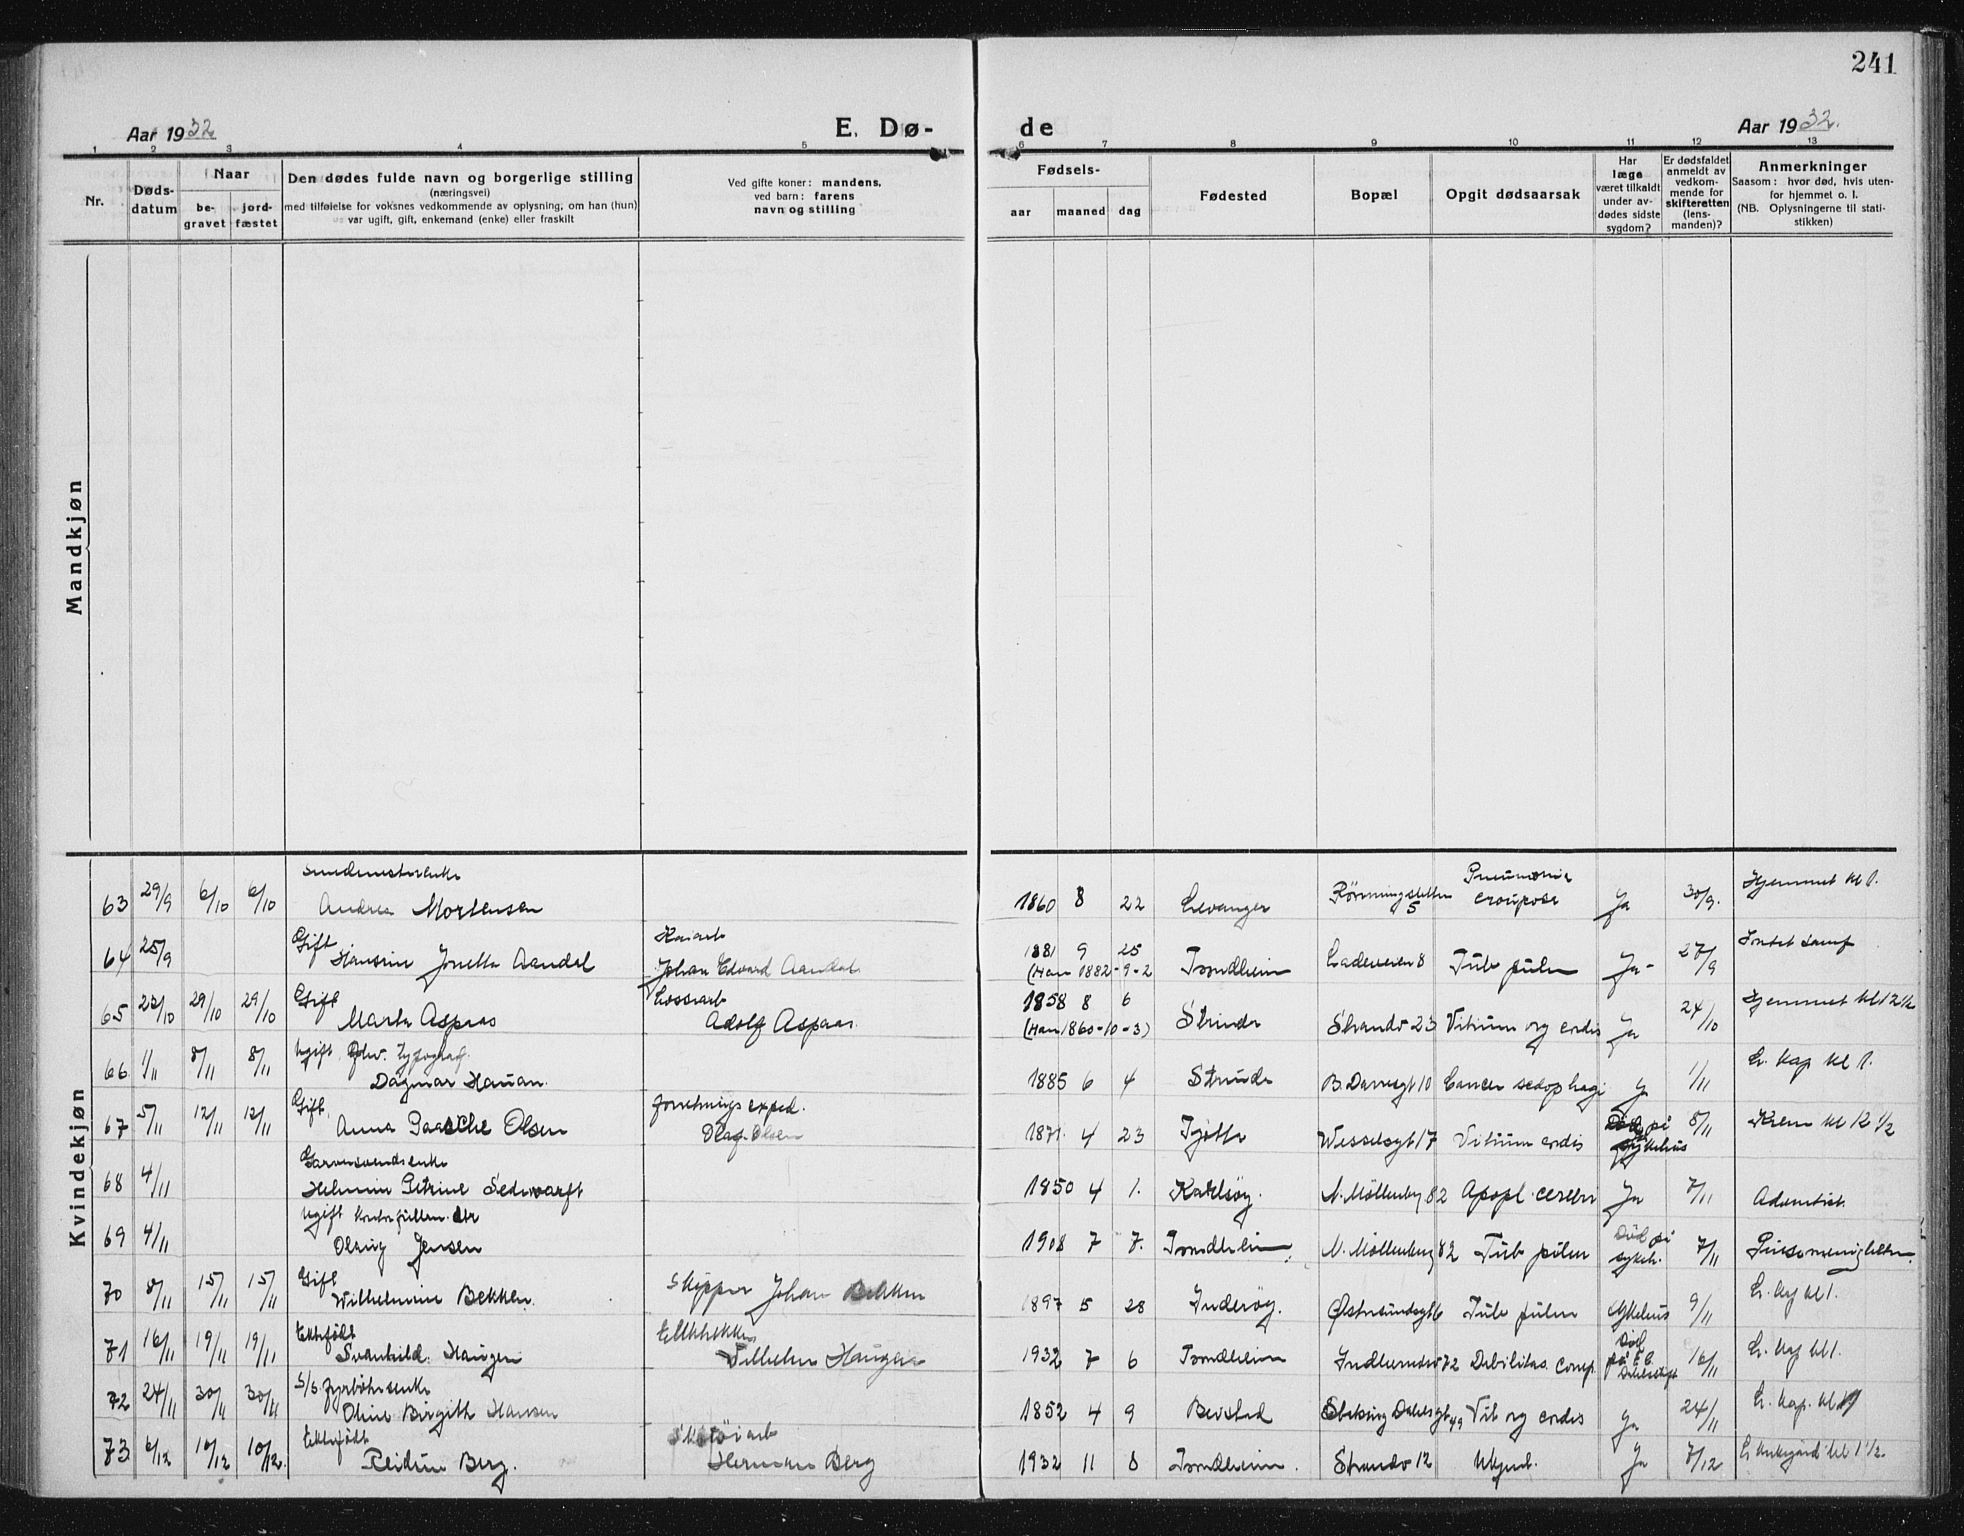 241
Aar 1932
E. Dø-
de
Aar 1932.
1 2 3 4 5 6 7 8 9 10 11 12 13
Nr.
Døds-
datum
Naar
be-
gravet
jord-
fæstet
Den dødes fulde navn og borgerlige stilling
(næringsvei)
med tilføielse for voksnes vedkommende av oplysning, om han (hun)
var ugift, gift, enkemand (enke) eller fraskilt
Ved gifte koner: mandens,
ved barn: farens
navn og stilling
Fødsels-
aar
maaned
dag
Fødested
Bopæl
Opgit dødsaarsak
Har
læge
været tilkaldt
under av-
dødes sidste
sygdom?
Er dødsfaldet
anmeldt av
vedkom-
mende for
skifteretten
(lens-
manden)?
Anmerkninger
Saasom: hvor død, hvis uten-
for hjemmet o. l.
(NB. Oplysningerne til stati-
stikken)
Mandkjøn
Kvindekjøn
63 29/9 6/10 6/10 Andrea Mortensen 1860 8 22 Levanger Rønningsletten 5 Pneumonia crouposa Ja 30/9. Hjemmet kl 1.
64 25/9 Gift Hansine Jonette Aandal Kaiarb Johan Edvard Aandal 1881 9 25 (Han 1882-9-2 Trondheim Ladeveien 8 Tub pulm Ja- 27/9
65 22/10 29/10 29/10 Gift Marta Aspaas Lossearb Adolf Aspaas. 1858 8 6 (Han 1860-10-3) Strinda Strandv 23 Vitium org cordis Ja 24/10 Hjemmet kl 12 1/2
66 1/11 8/11 8/11 Ugift fhv. typograf. Dagmar Hauan. 1885 6 4 Strinda 10 Cancer oesophagi Ja 1/11 L. kap kl 1.
67 5/11 12/11 12/11 Gift. Anna Paasche Olsen forretnings exped. Olaf Olsen 1871. 4 23 Tjøtta Wesselsgt 17 Vitium cordis Død på sykehus 8/11 Krem kl 12 1/2
68 4/11 Garversvendsenke Petrine 1850 4 1. Karlsøy. N. Møllenbg 82 Apopl. cerebri Ja 7/11 Adventist.
69 4/11 Ugift Jensen 1908 7 7. Trondheim N. Møllenberg 82 Tub pulm Død på sykeh. 7/11 Pinsemenigheten.
70 8/11 15/11 15/11 Gift Wilhelmine Bekken. Skipper Johan Bekken 1897 5 28 Inderøy. Tub pulm sykehus 9/11 L. kap kl 1.
71 16/11 19/11 19/11 Ektefødt Svanhild. Haugen Vilhelm Haugen 1932 7 6 Trondheim 72 Debilitas cong. Død på 16/11 L. kap kl 1.
72 24/11 30/11 30/11 S/S. fyrbøtersenke Oline Birgitte Hansen 1852 4 9 49 Vit org cordis Ja 24/11 L. kap. kl 1
73 6/12 10/12 10/12. Ektefødt Reidun Berg. Skotøiarb Herman Berg 1932 11 8 Trondheim. Strandv 12 Ukjend. Ja 7/12 L. kirkegård kl 1 1/2.